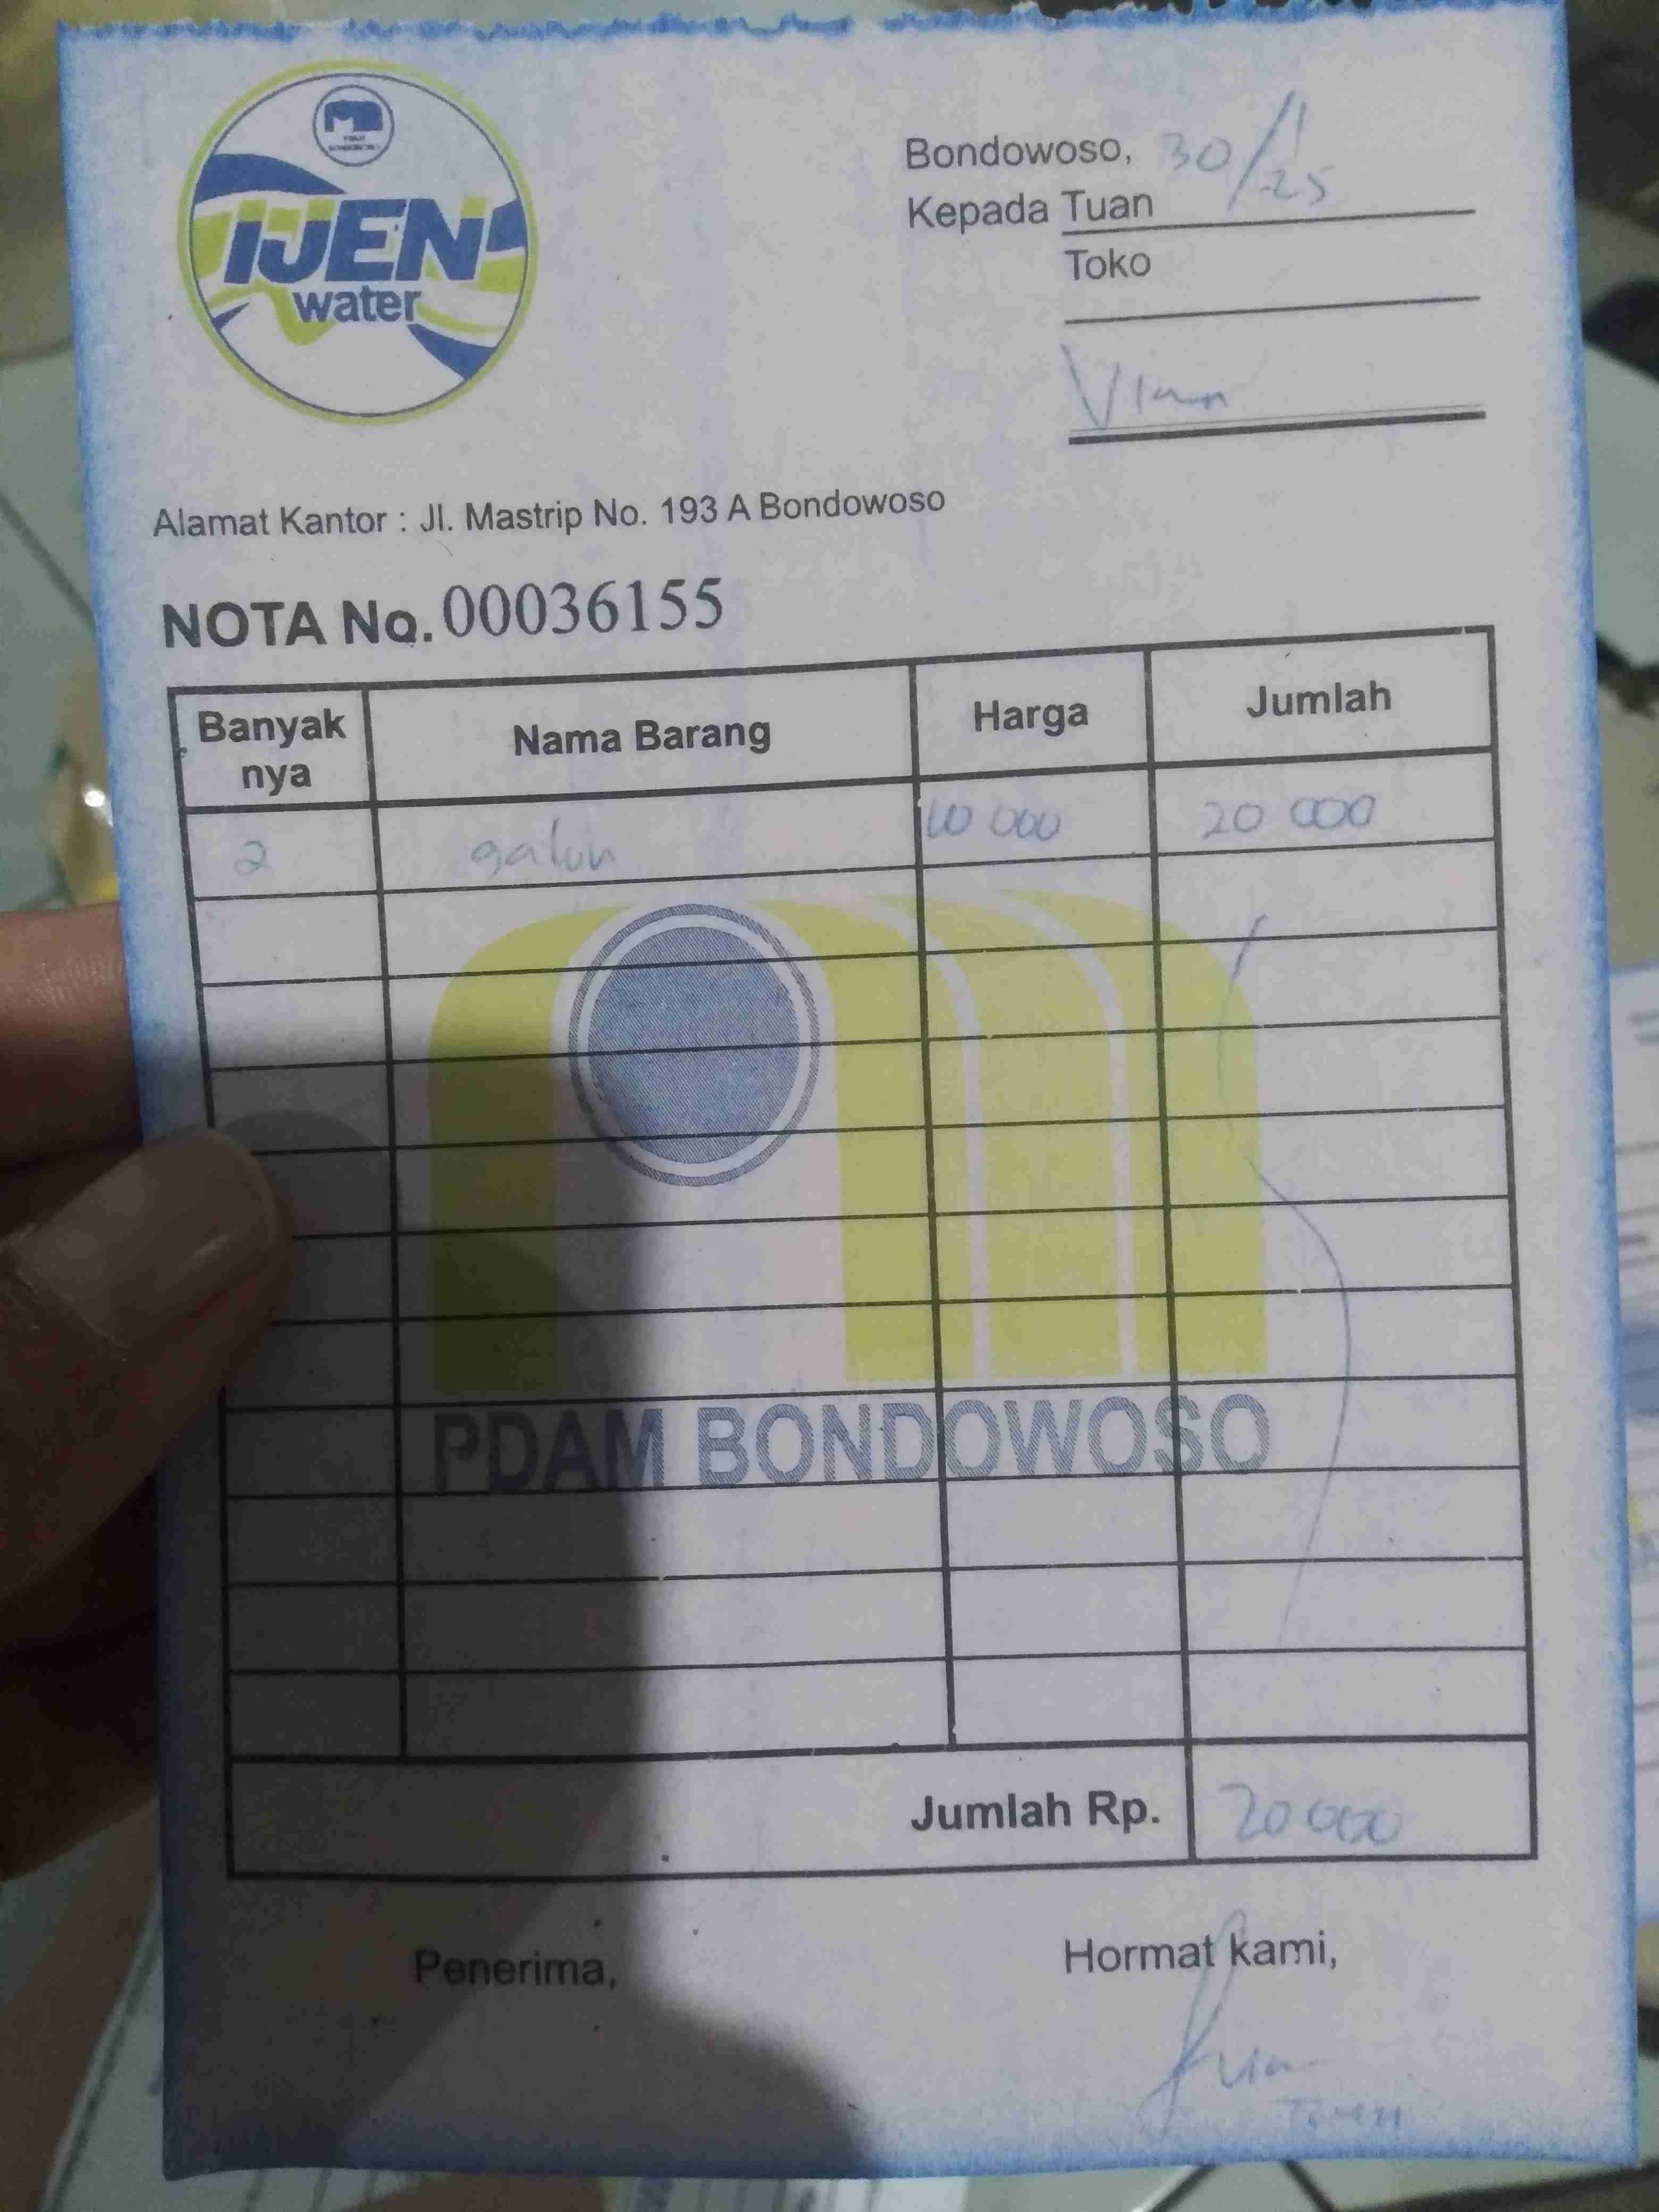 IJEN
water
Bondowoso, 30/1 25
Kepada Tuan
Toko
Alamat Kantor : Jl. Mastrip No. 193 A Bondowoso
NOTA No. 00036155
Banyak nya Nama Barang Harga Jumlah
2 galon 10 000 20 000
PDAM BONDOWOSO
Jumlah Rp. 20 000
Penerima, Hormat kami,